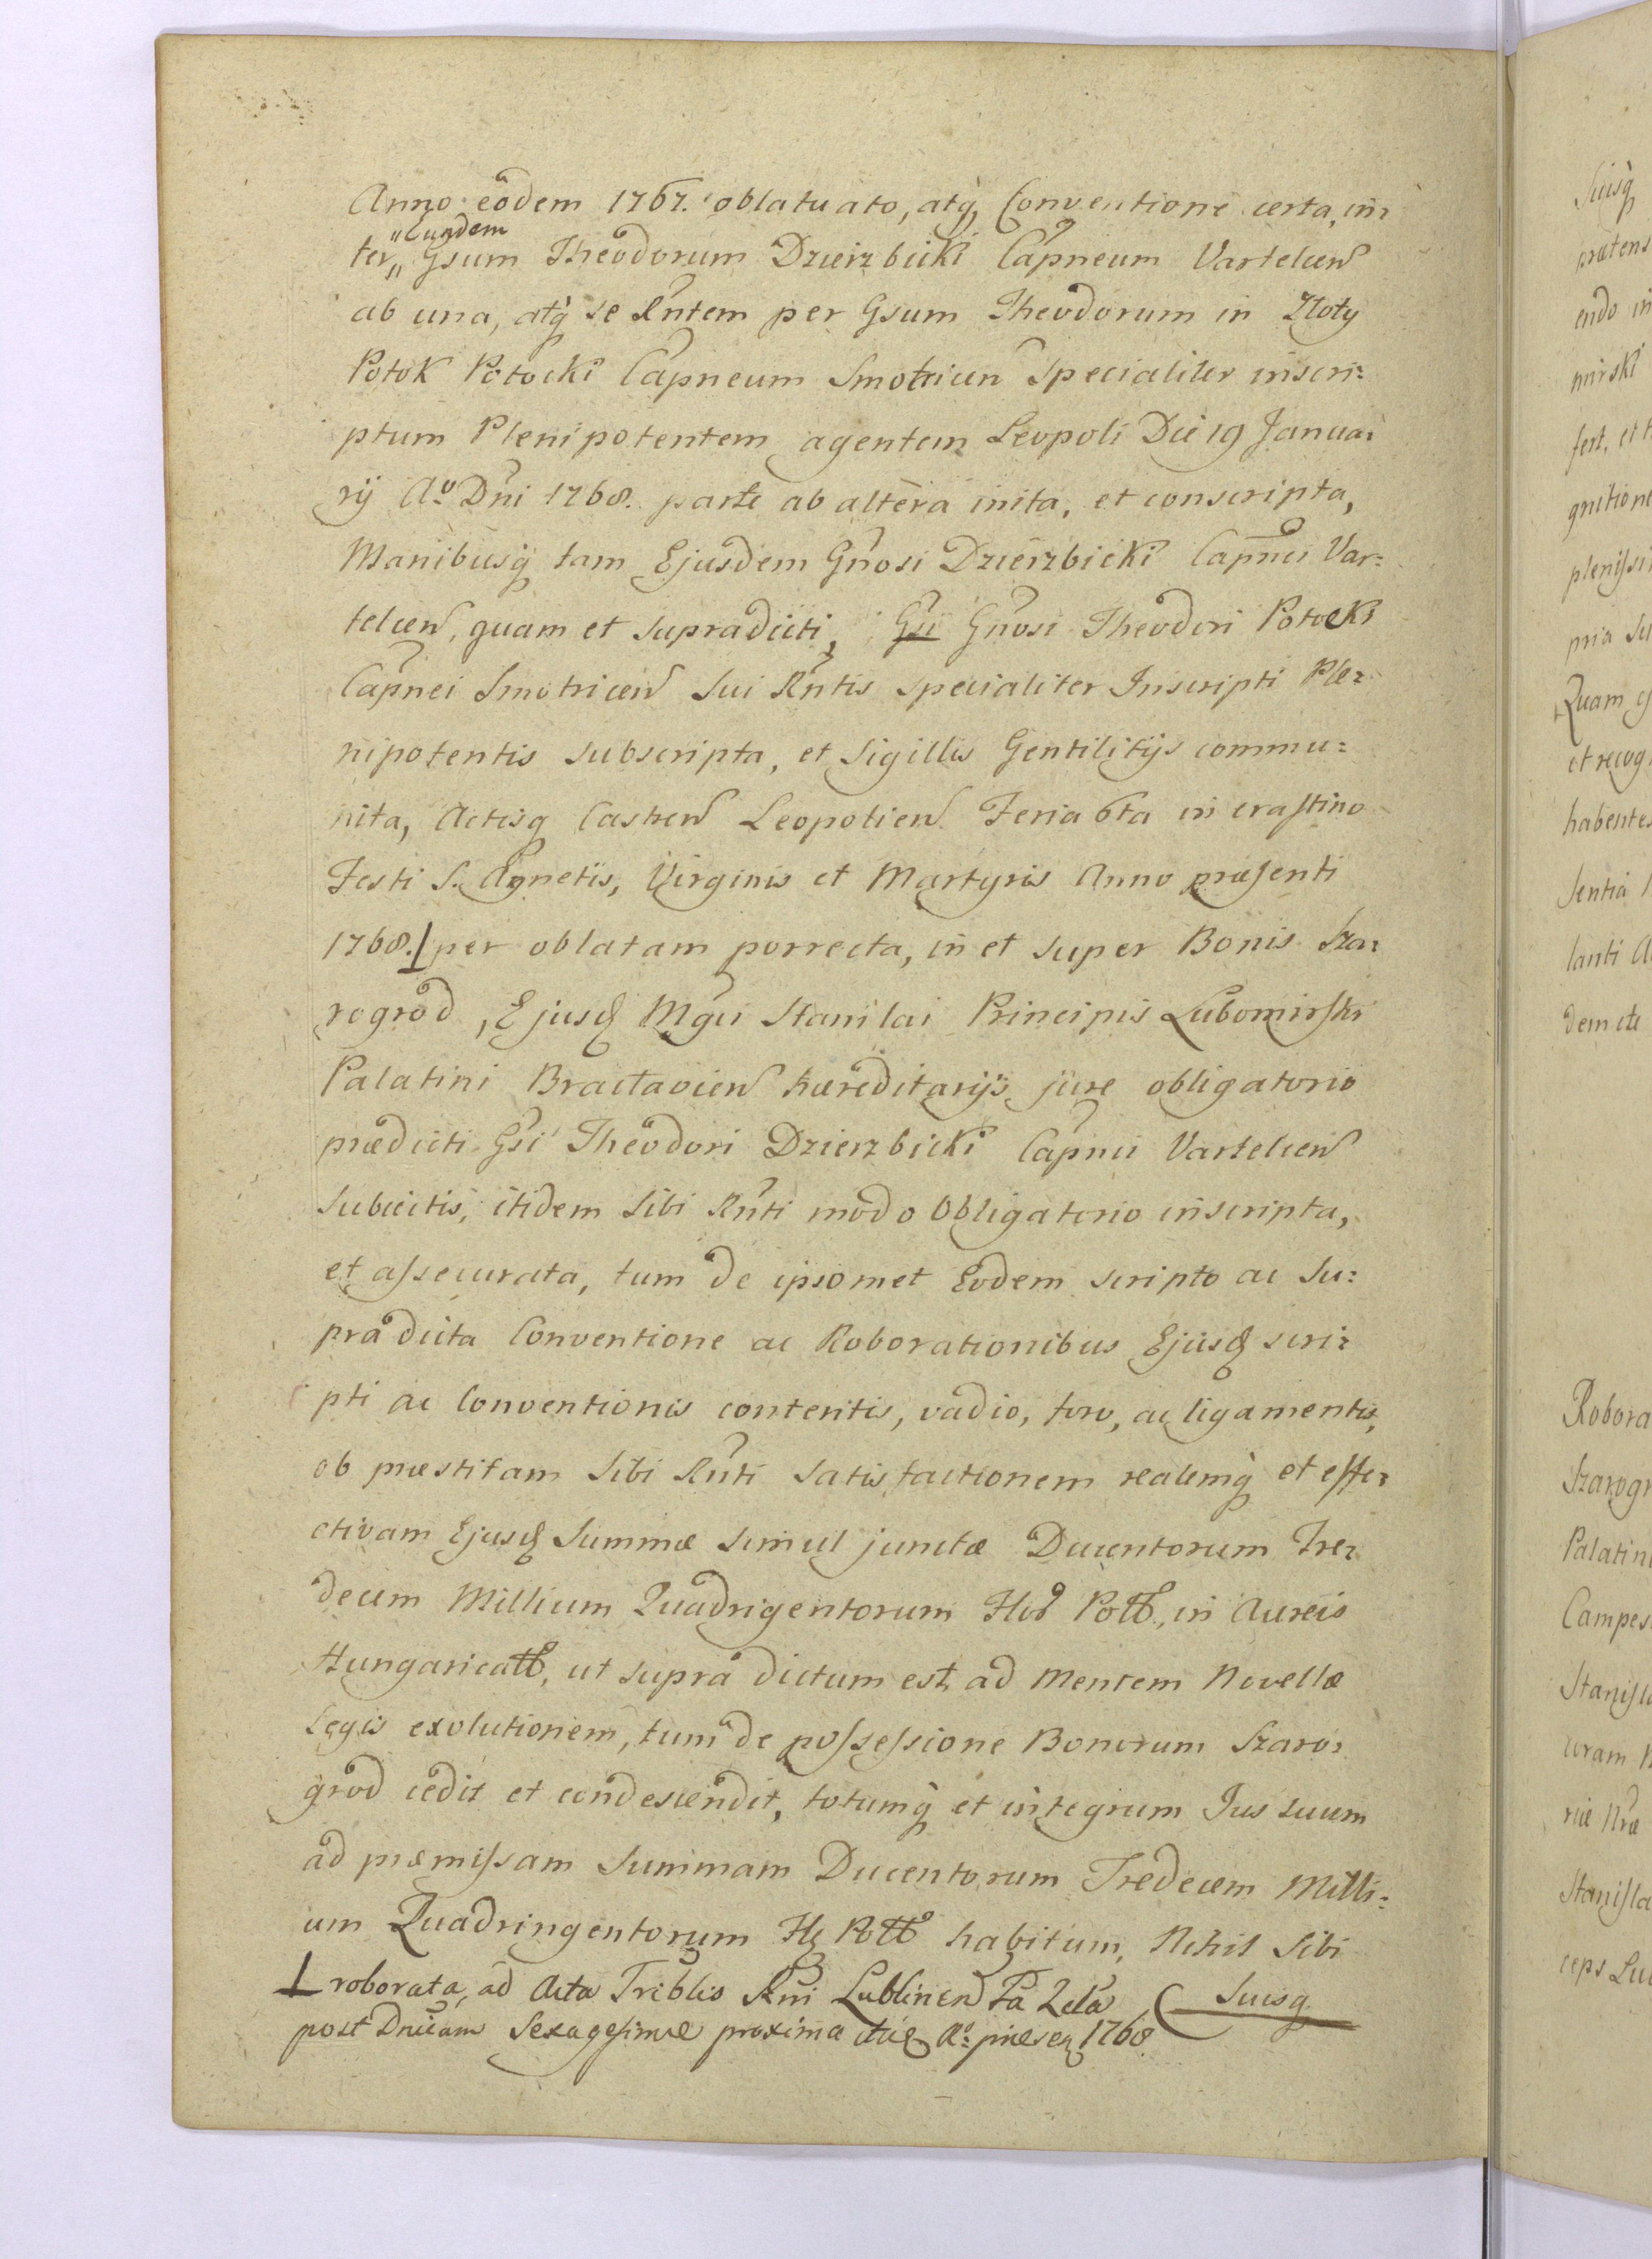 Anno eodem 1767. oblatuato, atq̃ Conventione certa, in=
ter „Eundem„ Gsum Theodorum Dzierzbicki Capneum Vartelcen
ab una, atq̃ se Rntem per Gsum Theodorum in Złoty
Potok Potocki Capneum Smotricen Specialiter inscri=
ptum Plenipotentem agentem Leopoli Die 19 Janua=
rij Ao Dni 1768. parte ab altera inita, et conscripta,
Manibusq̃ tam Ejusdem Gnosi Dzierzbicki Capnei Var=
telcen, quam et supradicti, Gsi Gnosi Theodori Potocki
Capnei Smotricen sui Rntis specialiter Inscripti Ple=
nipotentis subscripta, et Sigillis Gentilitijs commu=
nita, Actisq Castren Leopolien Feria 6ta in crastino
Festi S. Agnetis, Virginis et Martyris Anno præsenti
1768. ⊥ per oblatam porrecta, in et super Bonis Sza=
rogrod, Ejusd Mgci Stanilai Principis Lubomirski
Palatini Bractavien hæreditarijs jure obligatorio
prædicti Gsi Theodori Dzierzbicki Capnei Vartelcen
Subjectis, itidem sibi Rnti modo Obligatorio inscripta,
et assecurata, tum de ipsomet Eodem scripto ac Su=
pradicta Conventione ac Roborationibus Ejusd scri=
pti ac Conventionis contentis, vadio, foro, ac ligamentis,
ob præstitam sibi Rnti satisfactionem realemq̃ et effe=
ctivam Ejusd Summæ simul junctæ Ducentorum Tre=
decem Millium Quadrigentorum Flor Polł., in Aureis
Hungaricał, ut supra dictum est, ad Mentem Novellæ
Legis exolutionem, tum de possessione Bonorum Szaro=
grod cedit et condescendit, totumq̃ et integrum Jus suum
ad præmissam Summam Ducentorum Tredecem Milli=
um Quadringentorum Fl Poll habitum, Nihil Sibi
⊥ roborata, ad Acta Triblis Rni Lublinen Fa 2da Suisq
post Dnicam Sexagesimæ proxima Ao præsen 1768
Suisq̃
prætens
endo in
mirski
fert, et
gnitione
plenissi
pria Su
Quam
et recog
habentes
sentia
lanti A
dem
Robora
Szarogr
Palatin
Campes
Stanisla
uram
riæ Nræ
Stanisla
ceps Lu